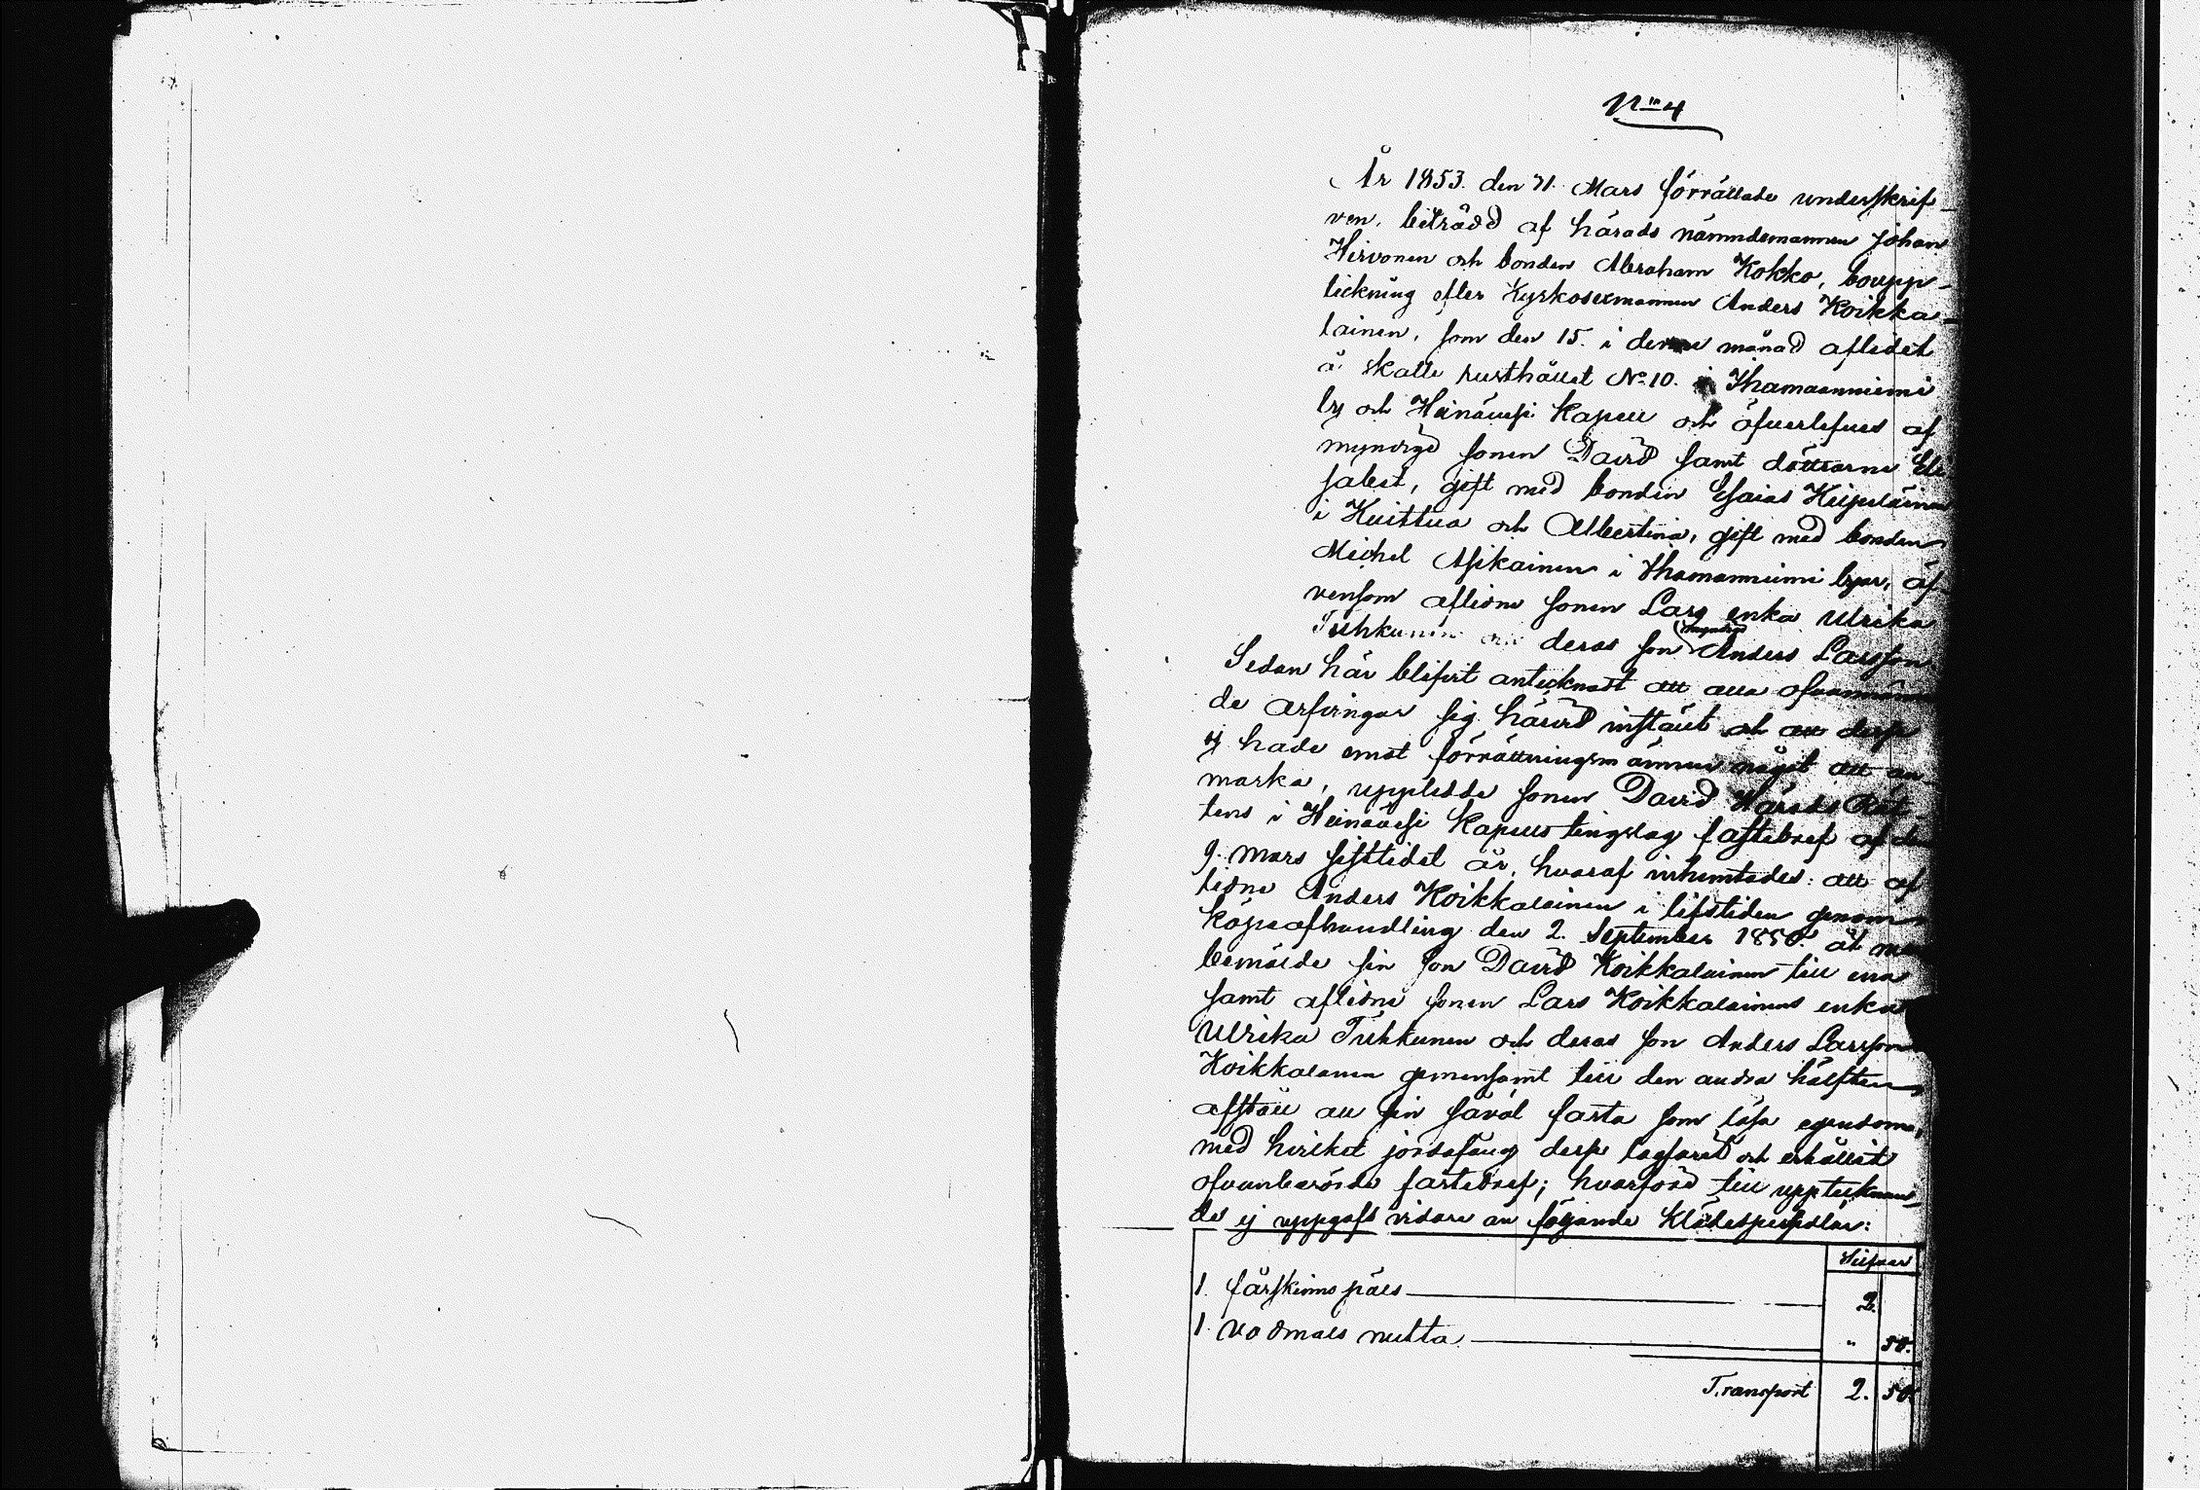 No 4
År 1853. den 31. Mars förrättade underskrif-
ven, biträdd af härads nämndemannen Johan
Hirvonen och bonden Abraham Kokko, boupp-
teckning efter Kyrkosexmannen Anders Koikka-
lainen, som den 15. i denna månad aflidit
å Skatte rusthållet No 10. i Ihamaniemi
by och Heinävesi Kapell och öfverlefves af
myndige sonen David samt döttrarne Eli
sabet, gift med bonden Esaias Keipiläinen
i Kuittua och Albertina, gift med bonden
Michel Asikainen i Ihamaniemi byar, äf
vensom aflidne sonen Lars enka Ulrika
Tiihkunen och deras son myndige Anders Larsson.
Sedan här blifvit antecknadt att alla ofvannämn
de arfvingar sig härvid inställt och att desse
ej hade emot förrättningsmännen något att an
marka, upptedde sonen David Härads Rät
tens i Heinävesi Kapells tingslag fastebref af den
9. mars sistlidet år, hvaraf inhemtades: att af
lidne Anders Koikkalainen i lifstiden genom
köpeafhandling den 2. September 1850. åt
bemälde sin son David Koikkalainen till ena
samt aflidne sonen Lars Koikkalainens enka
Ulrika Tiihkunen och deras son Anders Larsson
Koikkalanen gemensamt till den andra hälften,
afstått all sin såväl fasta som lösa egendom,
med hvilket jordafång desse lagfarit och erhållit
ofvanberörde fastebref; hvarföre till uppteknan-
de ej uppgafs vidare än följande klädespersedlar:
Silfver
1. fårskinns päls 2.
1. vadmals mutta " 50.
Transport 2. 50.